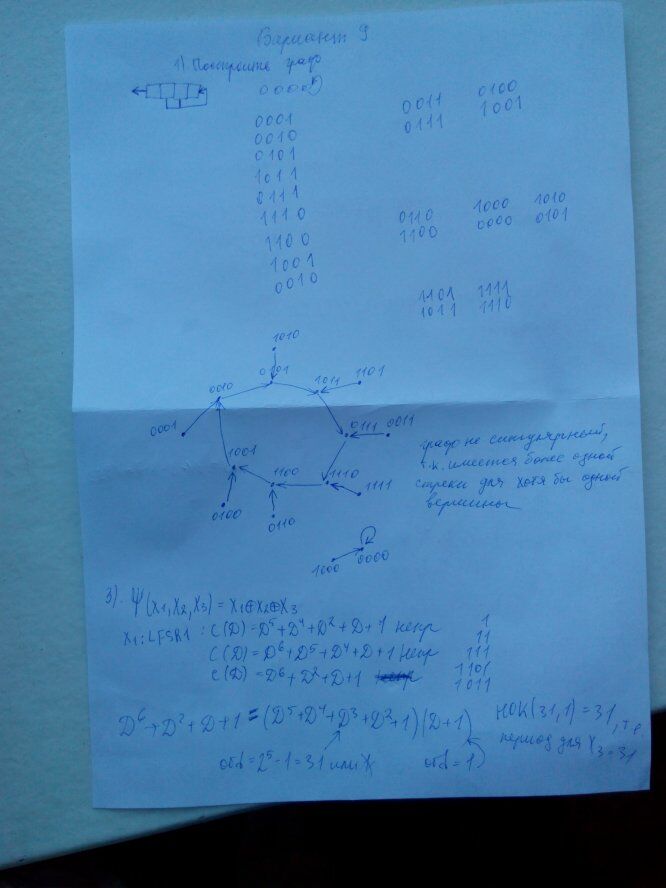 Вариант 9
1) Постройте граф
0000
0001
0010
0101
1011
0111
1110
1100
1001
0010
0011 0100
0111 1001
0110 1000 1010
1100 0000 0101
1101 1111
1011 1110
1010
0010 0101 1011 1101
0001 0111 0011
1001 1100 1110 1111
0100 0110
1000 0000
граф не сингулярный,
т.к. имеется более одной
стрелки для хотя бы одной
вершины
3). Ψ(x1,x2,x3) = x1⊕x2⊕x3
x1: LFSR1 : C(D)=D⁵+D⁴+D²+D+1 непр
C(D)=D⁶+D⁵+D⁴+D+1 непр
C(D)=D⁶+D²+D+1
1
11
111
1101
1011
D⁶+D²+D+1=(D⁵+D⁴+D³+D²+1)(D+1)
НОК(31,1)=31, т.е.
период для x3=31
=2⁵-1=31 или =1